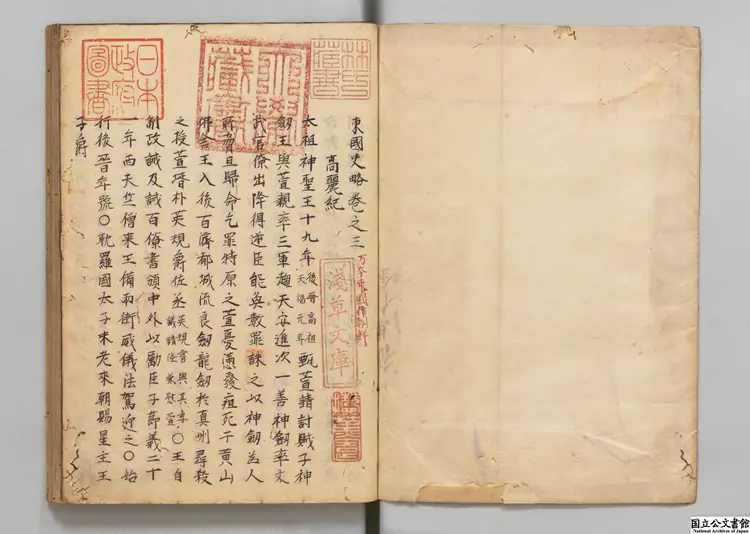 東國史略卷之三
高麗紀
太祖神聖王十九年後晉高祖天福元年甄萱請討賊子神
劒王與萱親率三軍趣天安進次一善神劒率文
武官僚出降得逆臣能奐數罪誅之以神劒爲人
所脅且歸命乞罪特原之萱憂懣發疽死于黄山
佛舍王入後百濟都城流良劒龍劒於真州尋殺
之授萱壻朴英規爵佐丞英規嘗與其妻議請慰萱〇王自
制政誡及誡百僚書頒中外以勵臣子節義二十
一年西天竺僧来王備兩街威儀法駕迎之〇始
行後晉年號〇耽羅國太子末老來朝賜星主王
子爵
林氏藏書
日本政府圖書
淺草文庫
国立公文書館
National Archives of Japan